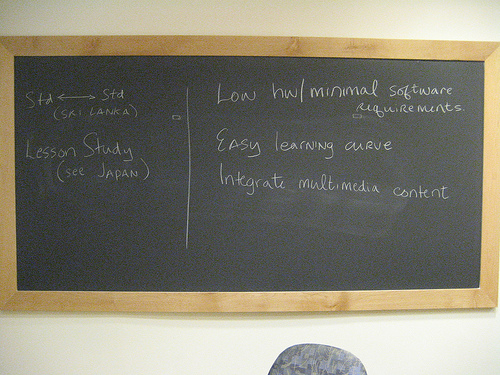 Std ⟷ Std
(SRI LANKA)
Lesson Study
(see JAPAN)
Low hw/minimal software
requirements.
Easy learning curve
Integrate multimedia content